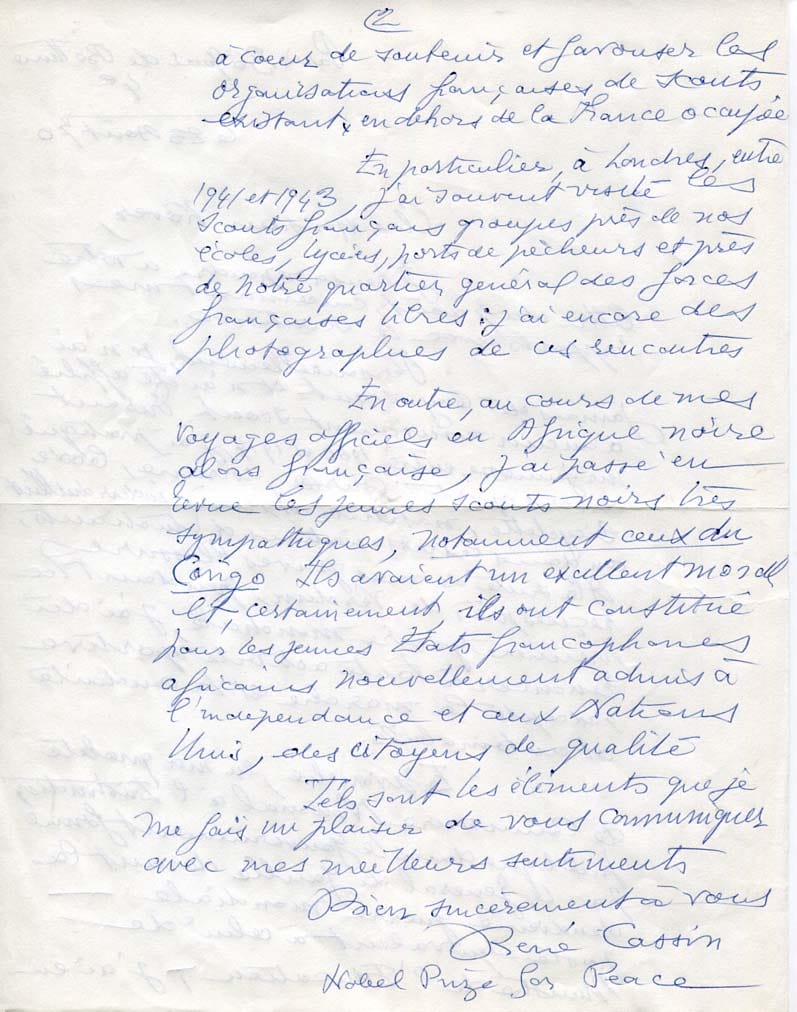 2
à coeur de soutenir et favoriser les
organisations françaises de scouts
existant en dehors de la France occupée
En particulier, à Londres, entre
1941 et 1943, j'ai souvent visité les
scouts français groupés près de nos
écoles, lycées, ports de pêcheurs et près
de notre quartier général des forces
françaises libres : j'ai encore des
photographies de ces rencontres
En outre, au cours de mes
voyages officiels en Afrique noire
alors française, j'ai passé en
revue les jeunes scouts noirs très
sympathiques, notamment ceux du
Congo Ils avaient un excellent moral
et, certainement, ils ont constitué
pour les jeunes Etats francophones
africains nouvellement admis à
l'indépendance et aux Nations
Unis, des citoyens de qualité
Tels sont les éléments que je
me fais un plaisir de vous communiquer
avec mes meilleurs sentiments
Bien sincèrement à vous
René Cassin
Nobel Prize for Peace